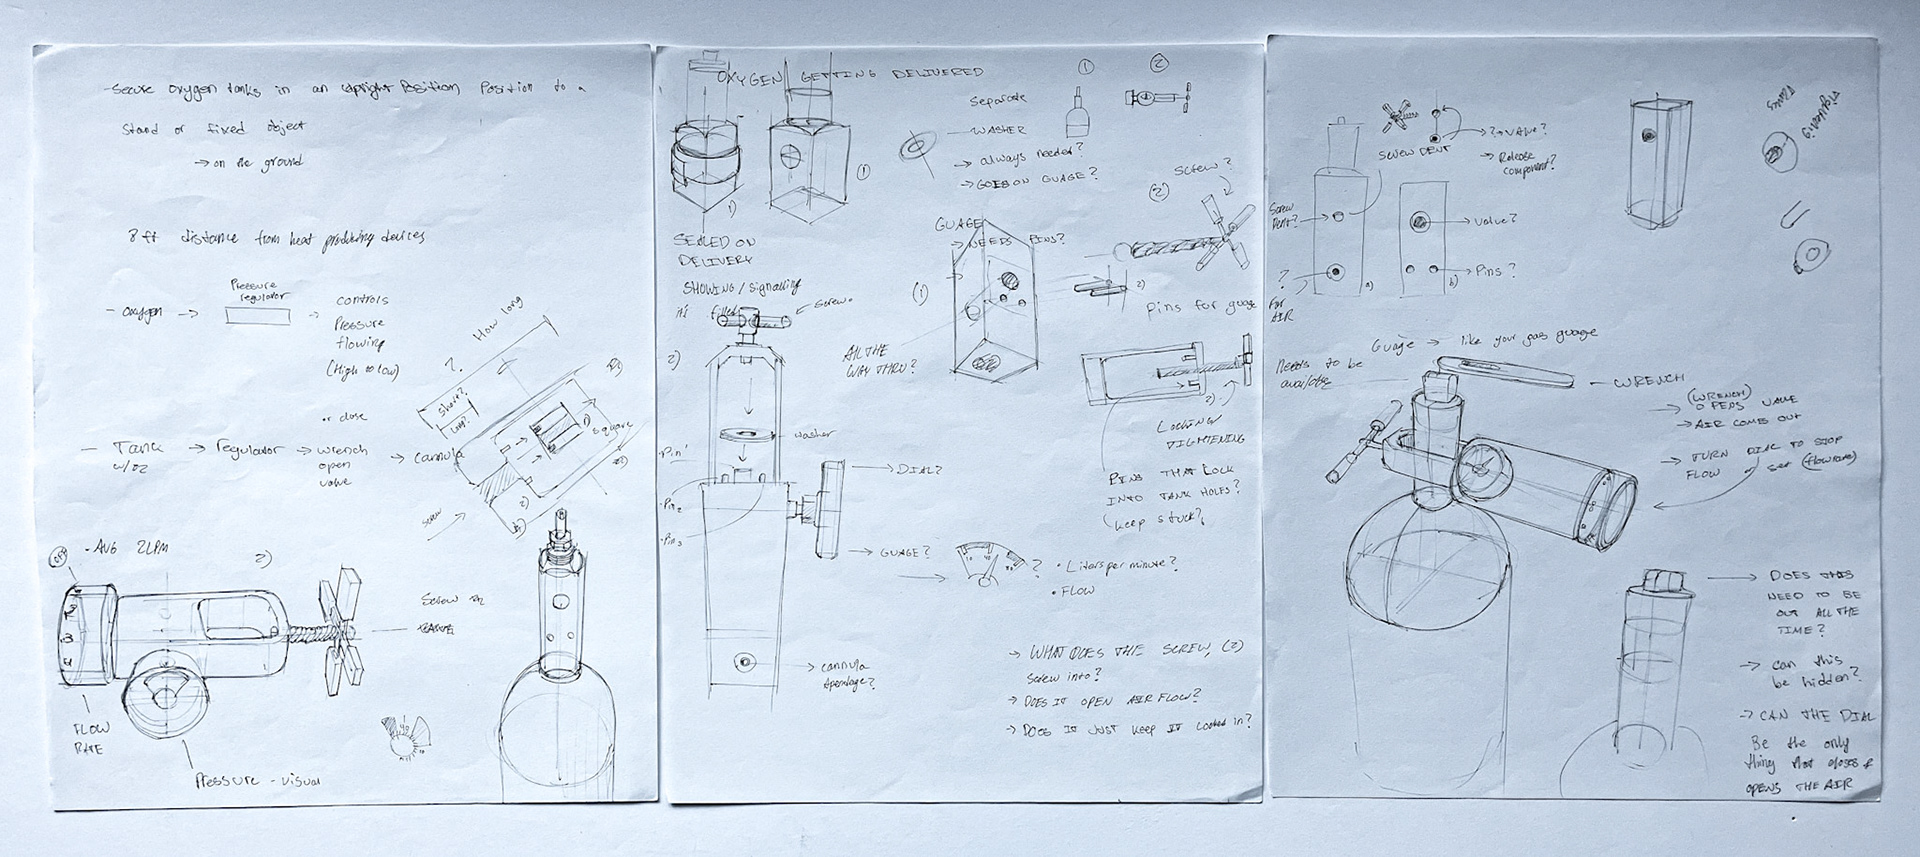 -Secure oxygen tanks in an upright Position Position to a
Stand or fixed object
→ on the ground
8 ft distance from heat producing devices
- Oxygen →
Pressure
regulator
→ controls
Pressure
flowing
(High to low)
or close
- Tank
w/O2
→ regulator → wrench
open
valve
→ cannula
How long
?
short?
long?
square
screw
1)
2)
- AVG 2LPM
OFF
2)
Screw
FLOW
RATE
Pressure - visual
OXYGEN GETTING DELIVERED
1
2
Separate
WASHER
→ always needed?
→ GOES ON GUAGE?
1)
1
SEALED ON
DELIVERY
SHOWING / signalling
it's filled
screw.
GUAGE
→ NEEDS PINS?
(1)
SCREW?
(2)
2)
Pins for guage
ALL THE
WAY THRU?
2)
washer
.Pin1
.Pin2
.Pin3
→ DIAL?
→ GUAGE?
?
• Liters per minute?
• FLOW
2)
LOCKING/
TIGHTENING
PINS THAT LOCK
INTO TANK HOLES?
(keep stuck?)
→ cannula
Apendage?
→ WHAT DOES THE SCREW, (2)
Screw into?
→ DOES IT OPEN AIR FLOW?
→ DOES IT JUST KEEP IT Locked in?
SCREW DENT
?→ VALVE?
→ Release
component?
Screw
Dent?
→ Valve?
?
→ Pins?
a)
b)
For
AIR
Guage → like your gas guage
Needs to be
available
WRENCH
(WRENCH)
→ OPENS VALVE
→ AIR COMES OUT
→ TURN DIAL TO STOP
FLOW or set (flowrate)
→ DOES THIS
NEED TO BE
OUT ALL THE
TIME?
→ can this
be hidden?
→ CAN THE DIAL
Be the only
thing that closes &
OPENS THE AIR